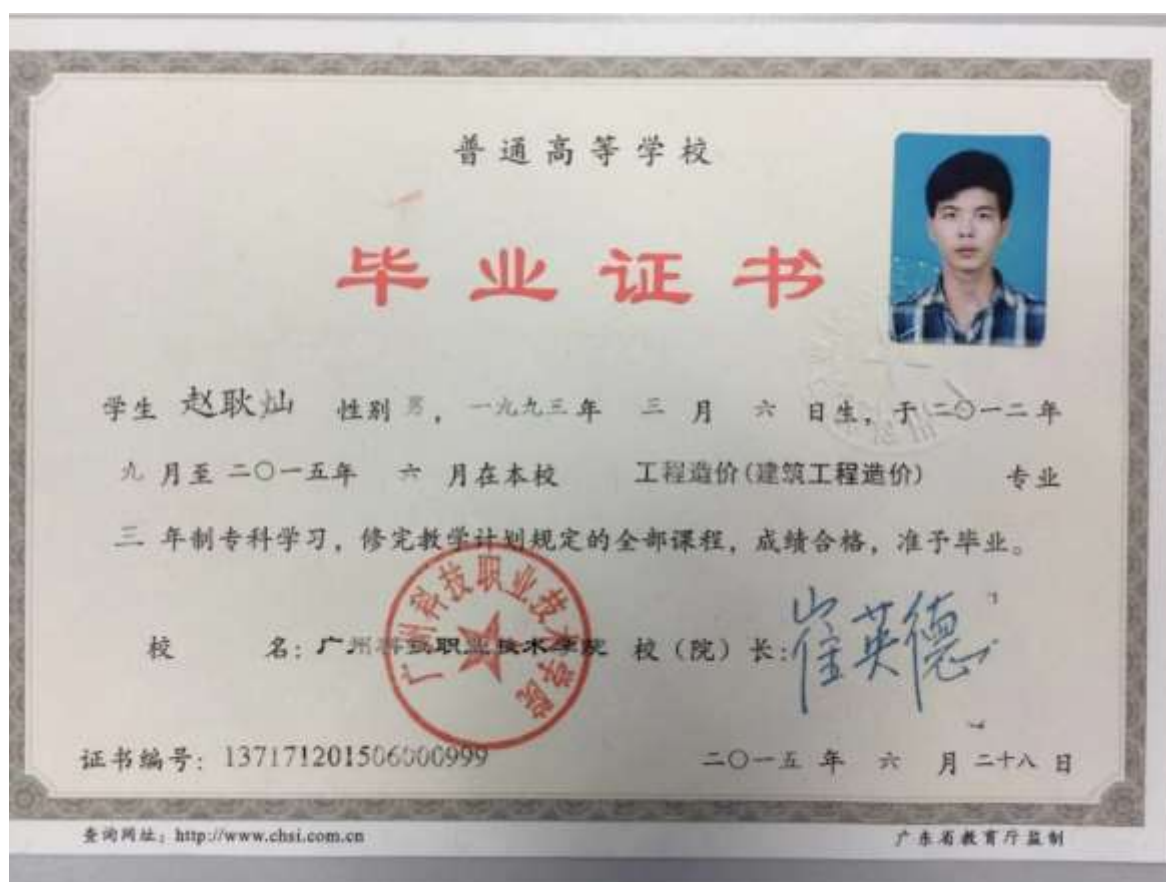 普通高等学校
毕业证书
学生 赵耿灿 性别 男，一九九三年 三 月 六 日生，于二〇一二年
九 月至 二〇一五年 六 月在本校 工程造价(建筑工程造价) 专业
三 年制专科学习，修完教学计划规定的全部课程，成绩合格，准予毕业。
广州科技职业技术学院
校 名：广州科技职业技术学院 校（院）长：崔英德
证书编号：137171201506000999 二〇一五 年 六 月 二十八 日
查询网址：http://www.chsi.com.cn 广东省教育厅监制